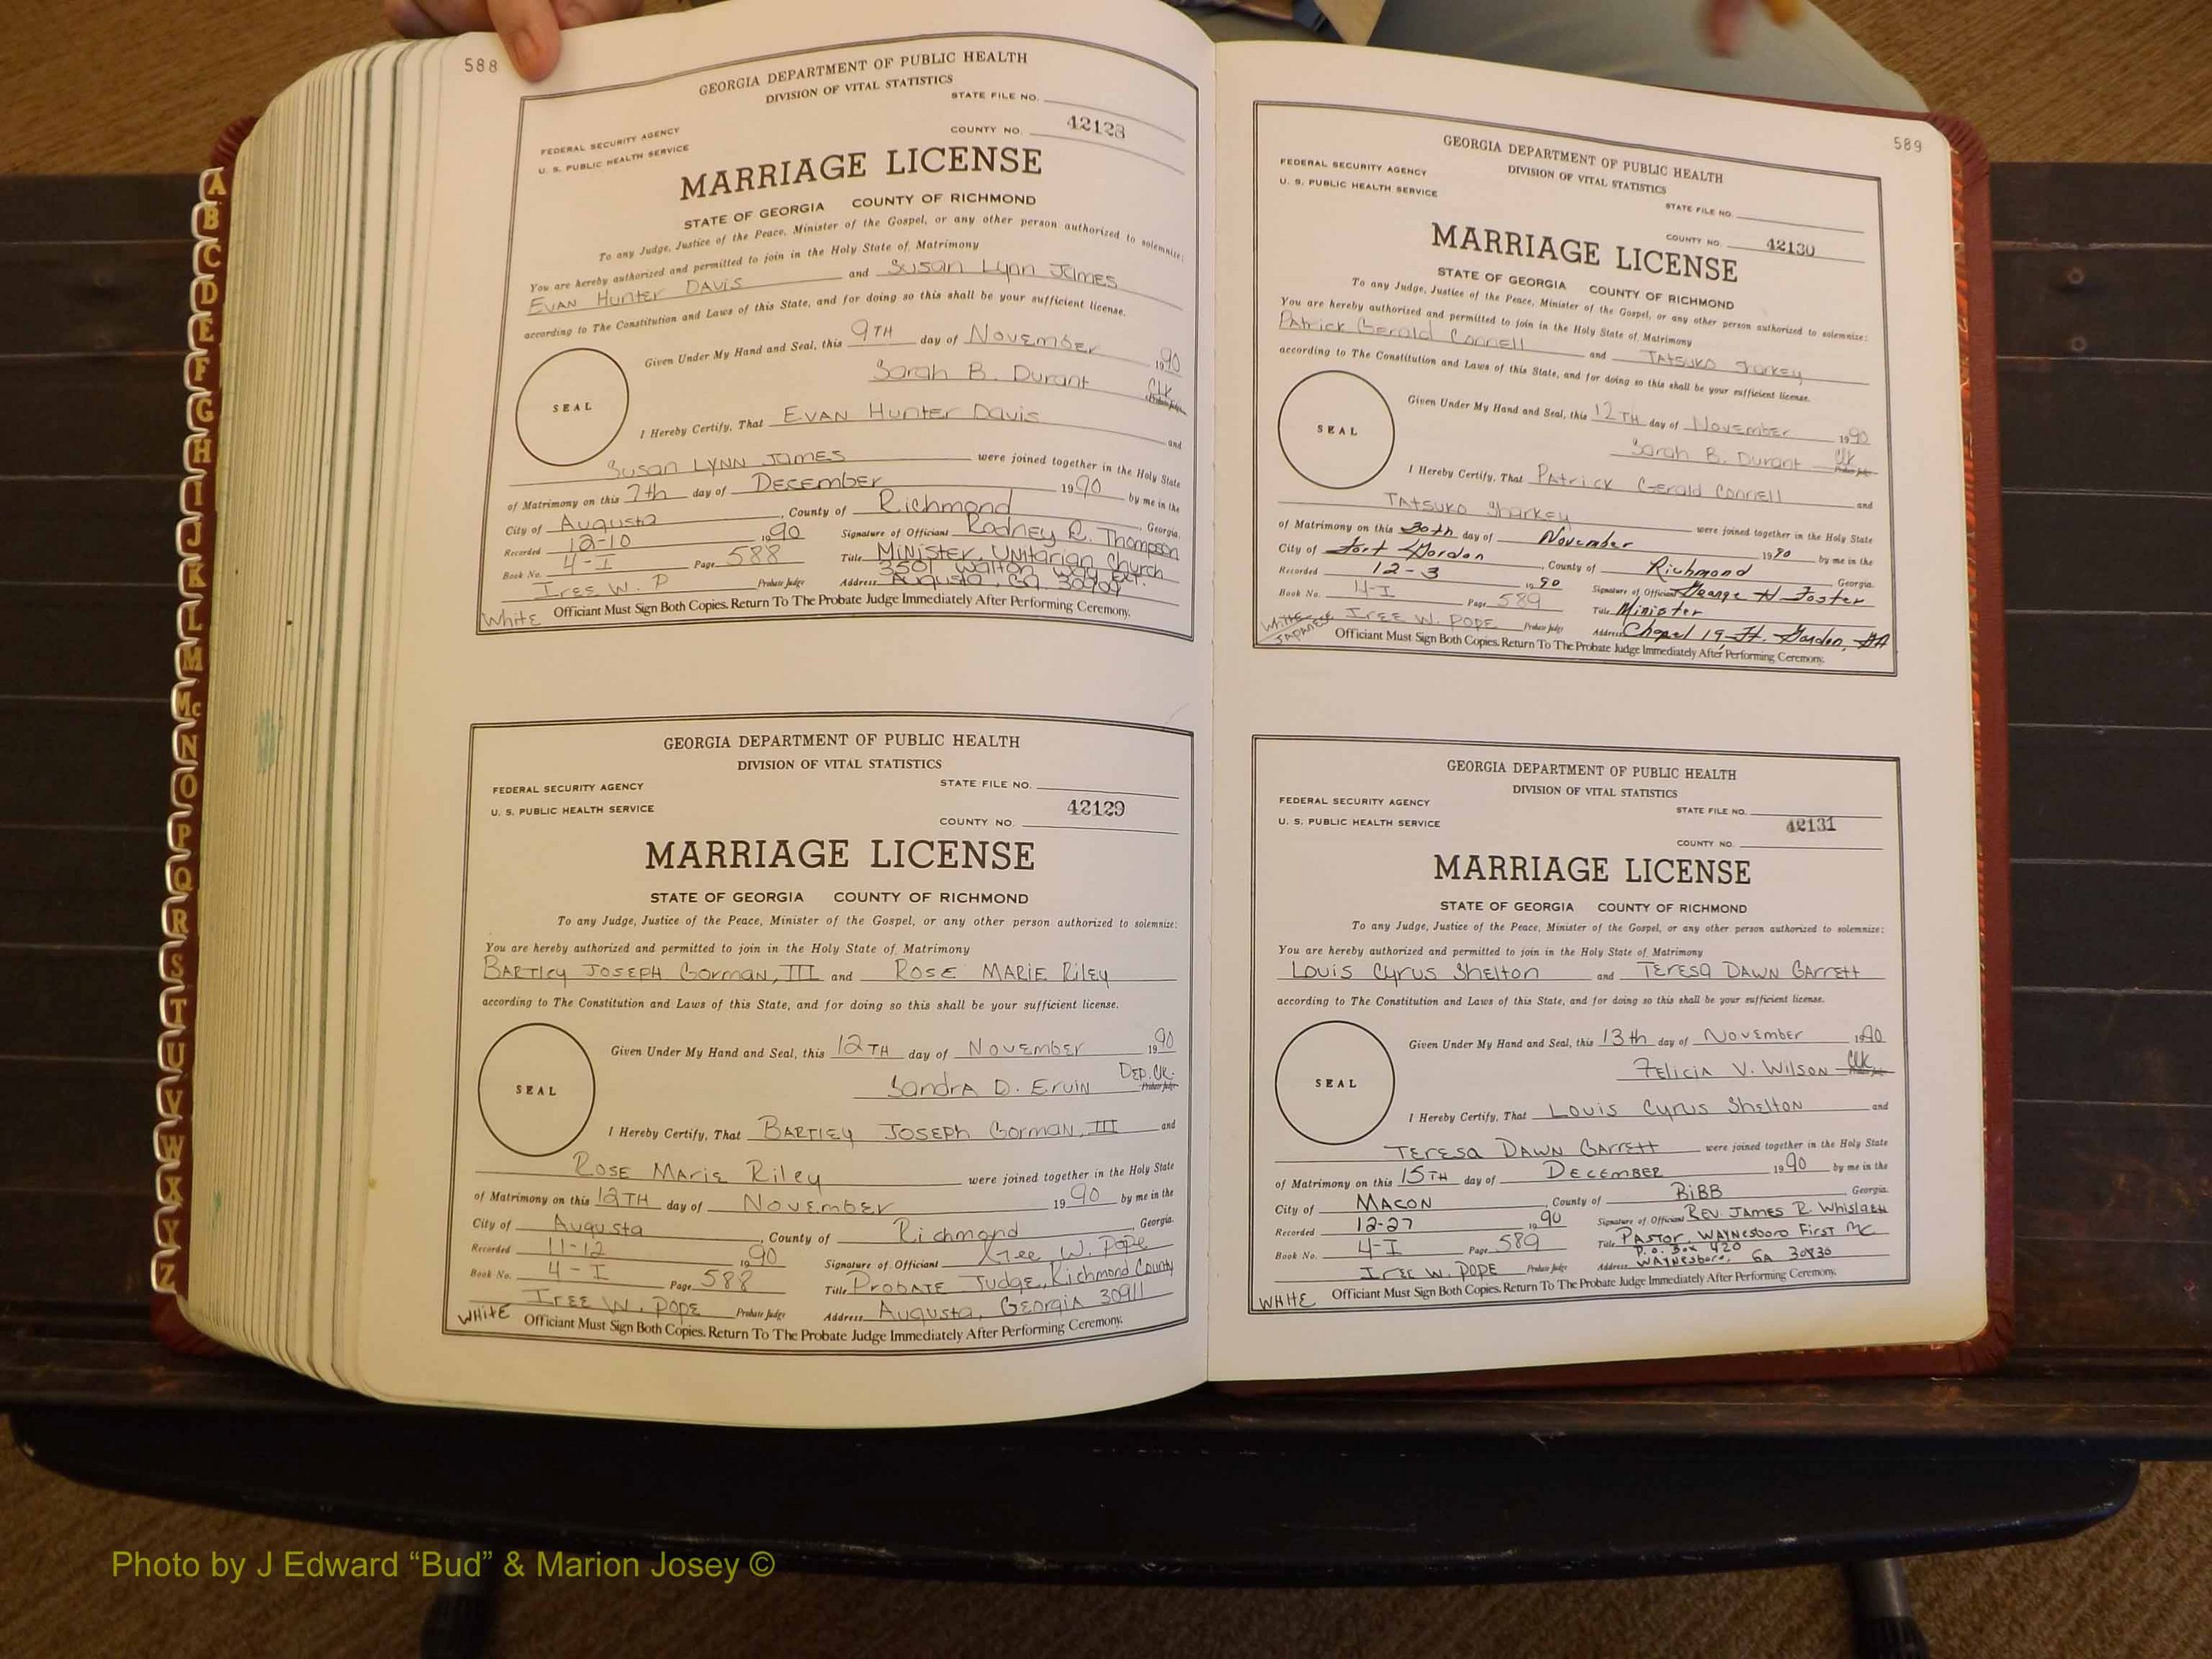 588
GEORGIA DEPARTMENT OF PUBLIC HEALTH
DIVISION OF VITAL STATISTICS
STATE FILE NO.
FEDERAL SECURITY AGENCY
COUNTY NO. 42128
U. S. PUBLIC HEALTH SERVICE
MARRIAGE LICENSE
STATE OF GEORGIA COUNTY OF RICHMOND
To any Judge, Justice of the Peace, Minister of the Gospel, or any other person authorized to solemnize:
You are hereby authorized and permitted to join in the Holy State of Matrimony
Evan Hunter Davis and Susan Lynn James
according to The Constitution and Laws of this State, and for doing so this shall be your sufficient license.
Given Under My Hand and Seal, this 9TH day of November 1990
Sarah B. Durant Clk
Probate Judge
SEAL
I Hereby Certify, That Evan Hunter Davis and
Susan Lynn James were joined together in the Holy State
of Matrimony on this 7th day of December 1990 by me in the
City of Augusta, County of Richmond, Georgia.
Recorded 12-10 1990 Signature of Officiant Rodney R. Thompson
Book No. 4-I Page 588 Title Minister, Unitarian Church
3501 Walton Way Ext.
Iree W. P Probate Judge Address Augusta, GA 30909
White Officiant Must Sign Both Copies. Return To The Probate Judge Immediately After Performing Ceremony.
GEORGIA DEPARTMENT OF PUBLIC HEALTH
DIVISION OF VITAL STATISTICS
FEDERAL SECURITY AGENCY STATE FILE NO.
U. S. PUBLIC HEALTH SERVICE 42129
COUNTY NO.
MARRIAGE LICENSE
STATE OF GEORGIA COUNTY OF RICHMOND
To any Judge, Justice of the Peace, Minister of the Gospel, or any other person authorized to solemnize:
You are hereby authorized and permitted to join in the Holy State of Matrimony
Bartley Joseph Gorman, III and Rose Marie Riley
according to The Constitution and Laws of this State, and for doing so this shall be your sufficient license.
Given Under My Hand and Seal, this 12TH day of November 1990
Sandra D. Ervin Dep. Clk.
Probate Judge
SEAL
I Hereby Certify, That Bartley Joseph Gorman, III and
Rose Marie Riley were joined together in the Holy State
of Matrimony on this 12TH day of November 1990 by me in the
City of Augusta, County of Richmond, Georgia.
Recorded 11-12 1990 Signature of Officiant Iree W. Pope
Book No. 4-I Page 588 Title Probate Judge, Richmond County
Iree W. Pope Probate Judge Address Augusta, Georgia 30911
White Officiant Must Sign Both Copies. Return To The Probate Judge Immediately After Performing Ceremony.
589
GEORGIA DEPARTMENT OF PUBLIC HEALTH
DIVISION OF VITAL STATISTICS
FEDERAL SECURITY AGENCY
U. S. PUBLIC HEALTH SERVICE
STATE FILE NO.
COUNTY NO. 42130
MARRIAGE LICENSE
STATE OF GEORGIA COUNTY OF RICHMOND
To any Judge, Justice of the Peace, Minister of the Gospel, or any other person authorized to solemnize:
You are hereby authorized and permitted to join in the Holy State of Matrimony
Patrick Gerald Connell and Tatsuko Sharkey
according to The Constitution and Laws of this State, and for doing so this shall be your sufficient license.
Given Under My Hand and Seal, this 12TH day of November 1990
Sarah B. Durant Clk
Probate Judge
SEAL
I Hereby Certify, That Patrick Gerald Connell and
Tatsuko Sharkey were joined together in the Holy State
of Matrimony on this 30th day of November 1990 by me in the
City of Fort Gordon, County of Richmond Georgia.
Recorded 12-3 1990 Signature of Officiant George N Foster
Book No. 4-I Page 589 Title Minister
Iree W. Pope Probate Judge Address Chapel 19, Ft. Gordon, GA
White Japanese Officiant Must Sign Both Copies. Return To The Probate Judge Immediately After Performing Ceremony.
GEORGIA DEPARTMENT OF PUBLIC HEALTH
DIVISION OF VITAL STATISTICS
FEDERAL SECURITY AGENCY STATE FILE NO.
U. S. PUBLIC HEALTH SERVICE 42131
COUNTY NO.
MARRIAGE LICENSE
STATE OF GEORGIA COUNTY OF RICHMOND
To any Judge, Justice of the Peace, Minister of the Gospel, or any other person authorized to solemnize:
You are hereby authorized and permitted to join in the Holy State of Matrimony
Louis Cyrus Shelton and Teresa Dawn Garrett
according to The Constitution and Laws of this State, and for doing so this shall be your sufficient license.
Given Under My Hand and Seal, this 13th day of November 1990
Felicia V. Wilson Clk
Probate Judge
SEAL
I Hereby Certify, That Louis Cyrus Shelton and
Teresa Dawn Garrett were joined together in the Holy State
of Matrimony on this 15TH day of December 1990 by me in the
City of Macon, County of Bibb Georgia.
Recorded 12-27 1990 Signature of Officiant Rev. James R.
Book No. 4-I Page 589 Title Pastor, Waynesboro First
P.O. Box 420
Iree W. Pope Probate Judge Address Waynesboro, GA 30830
White Officiant Must Sign Both Copies. Return To The Probate Judge Immediately After Performing Ceremony.
A
B
C
D
E
F
G
H
I
J
K
L
M
Mc
N
O
P
Q
R
S
T
U
V
W
X
Y
Z
Photo by J Edward “Bud” & Marion Josey ©